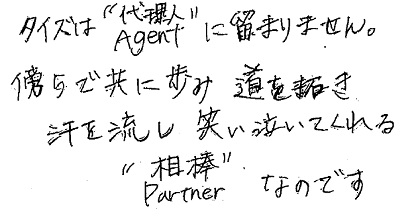 タイズは“代理人 Agent”に留まりません。
傍らで共に歩み 道を拓き
汗を流し 笑い泣いてくれる
“相棒 Partner”なのです